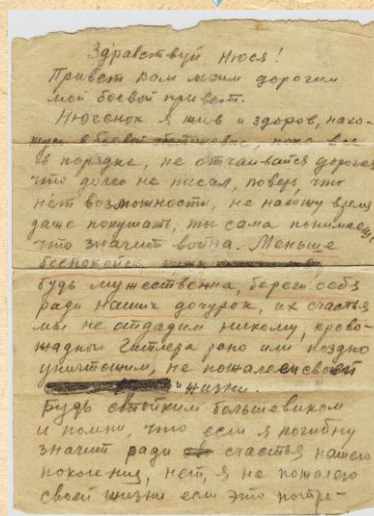 Здравствуй Нюся!
Привет вам моим дорогим
мой боевой привет.
Нюсенок я жив и здоров, нахо-
жусь в боевой обстановке, пока все
в порядке, не отчаивайся дорогая
что долго не писал, поверь, что
нет возможности, не нахожу время
даже покушать, ты сама понимаешь
что значит война. Меньше
беспокойся
будь мужественна, береги себя
ради наших дочурок, их счастья
мы не отдадим никому, крово-
жадного Гитлера рано или поздно
уничтожим, не пожалеем своей
жизни.
Будь стойким большевиком
и помни, что если я погибну
значит ради счастья нашего
поколения, нет, я не пожалею
своей жизни если это потре-